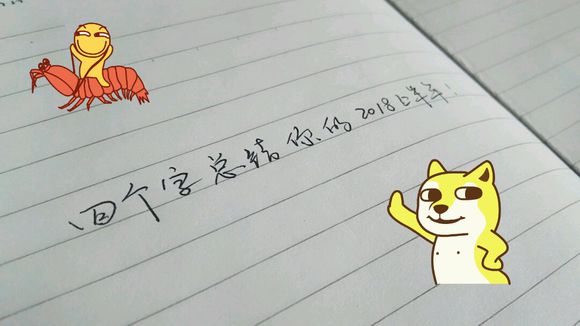 四个字总结你的2018上半年！